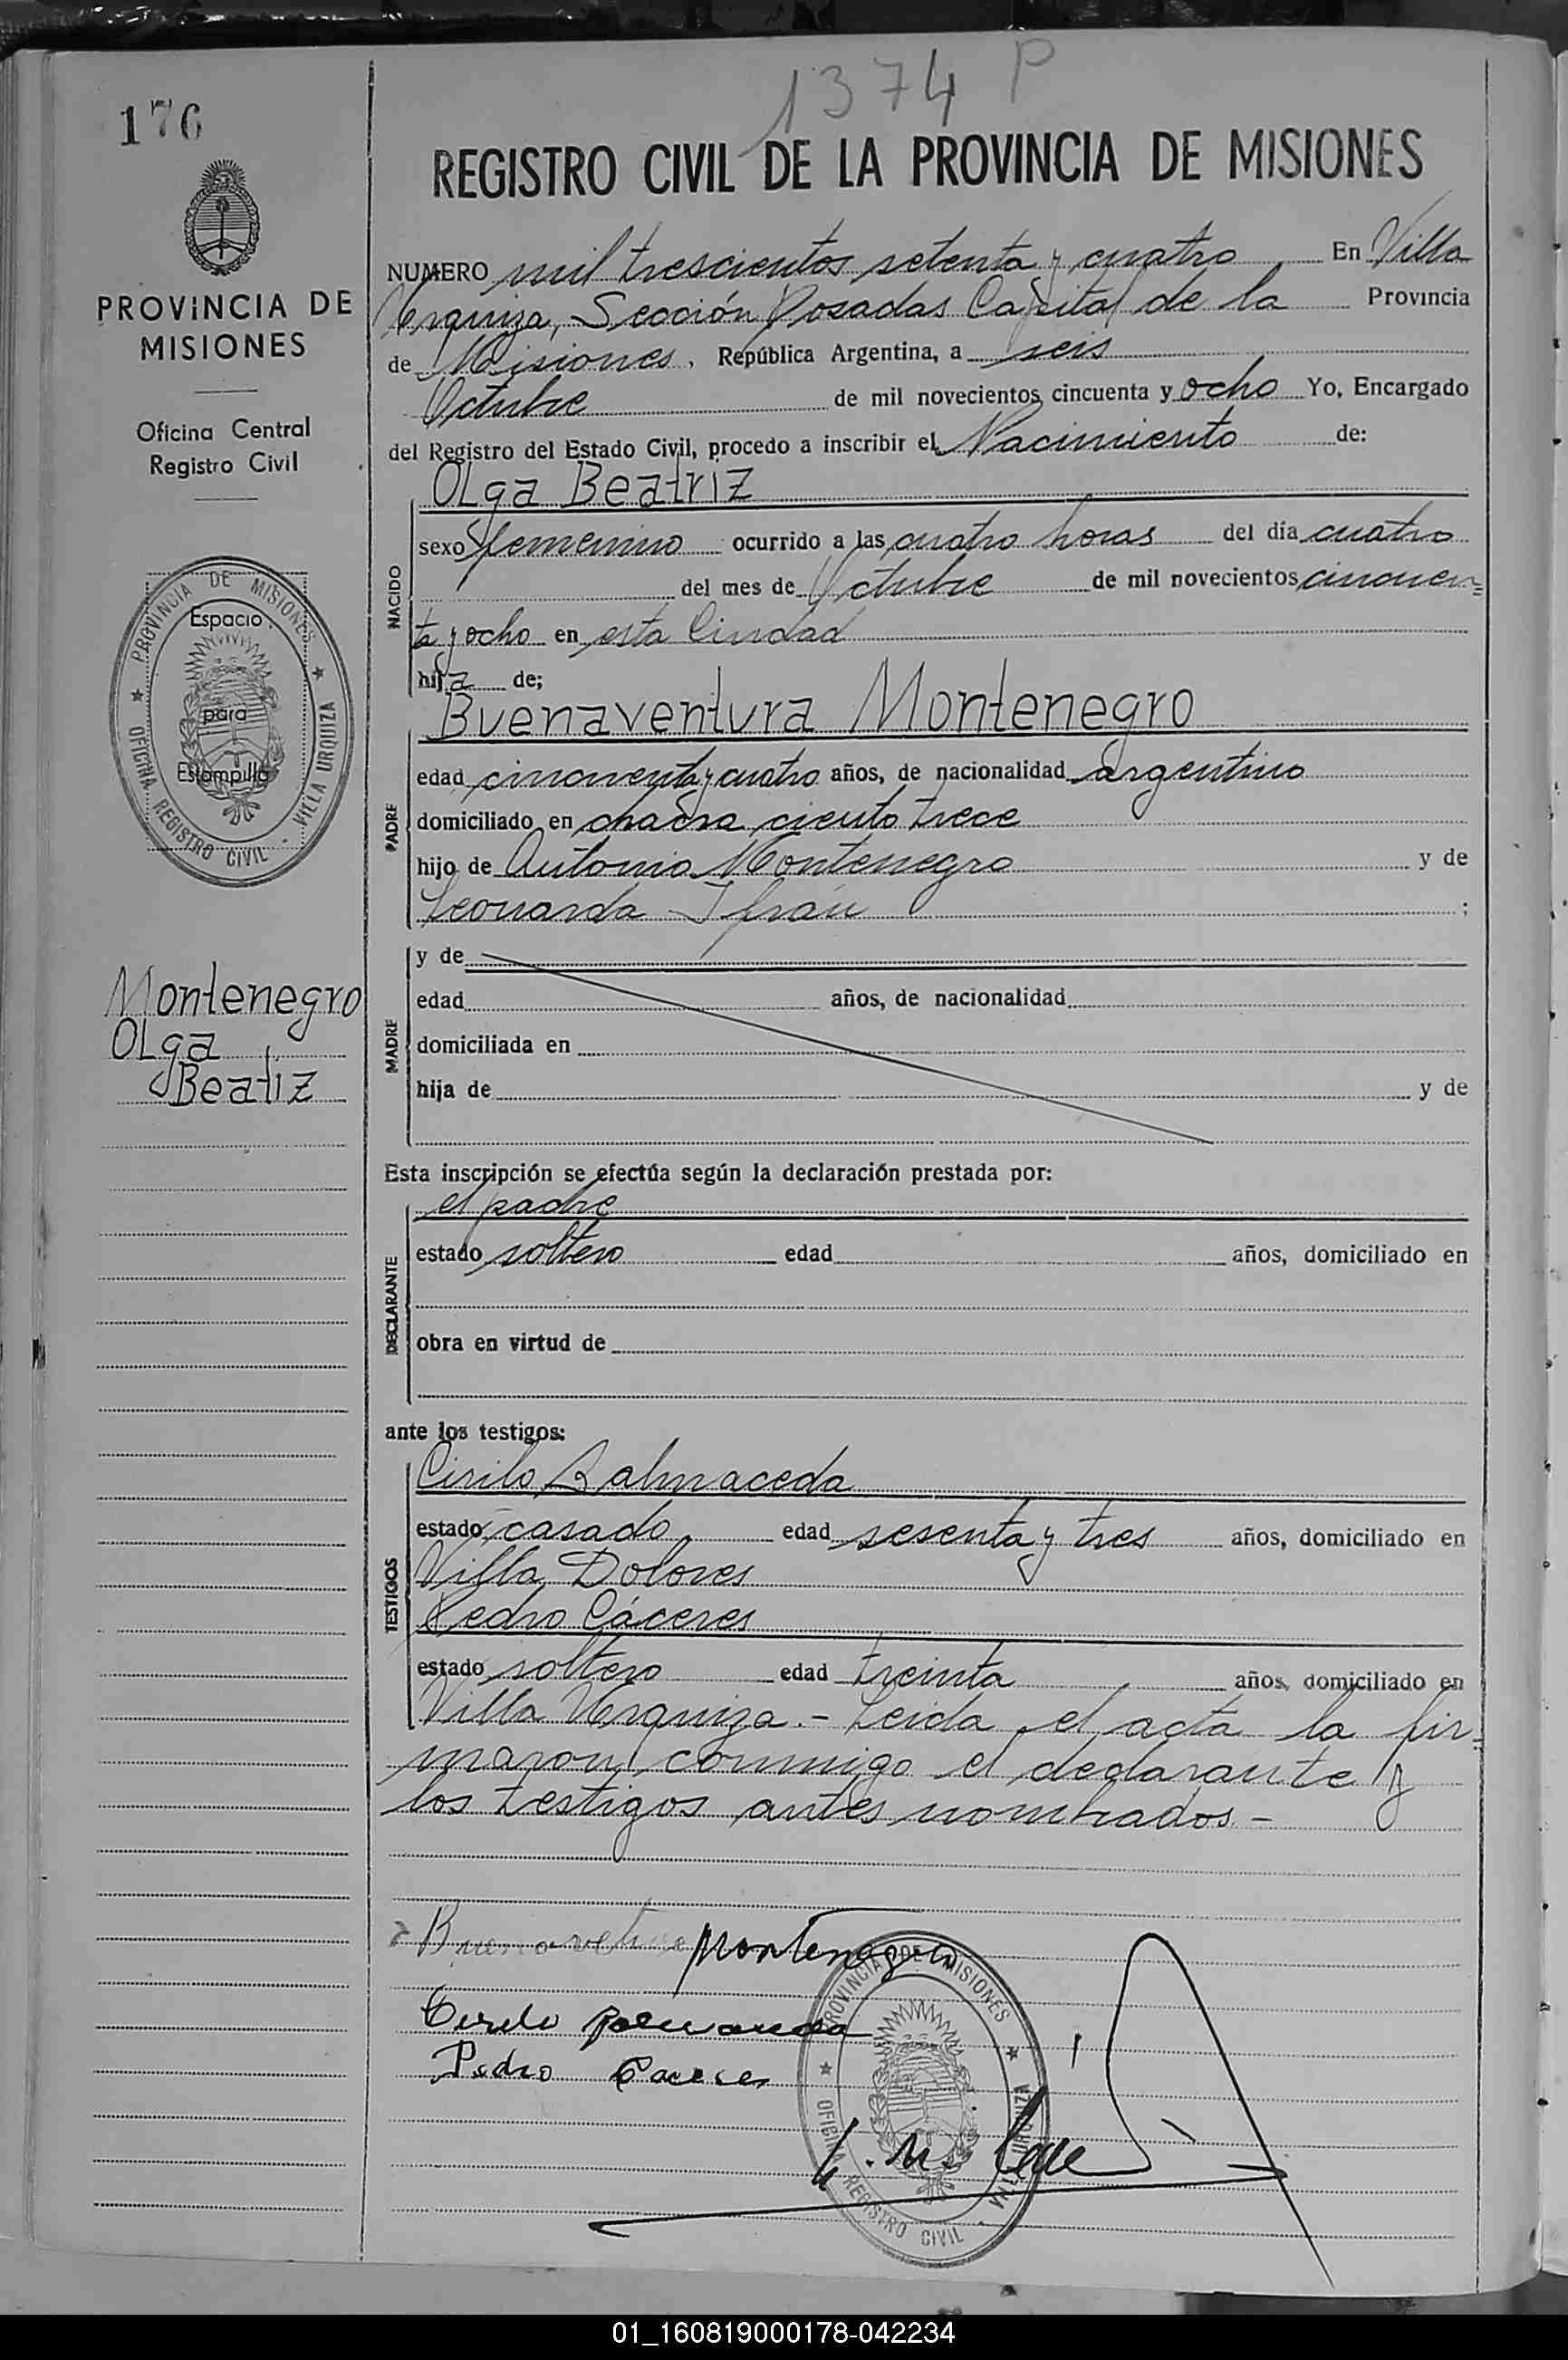 1374 P
176
REGISTRO CIVIL DE LA PROVINCIA DE MISIONES
PROVINCIA DE
MISIONES
Oficina Central
Registro Civil
PROVINCIA DE MISIONES
Espacio
para
Estampilla
OFICINA REGISTRO CIVIL - VILLA URQUIZA
Montenegro
OLga
Beatiz
NUMERO mil trescientos setenta y cuatro En Villa
Urquiza, Sección Posadas Capital de la Provincia
de Misiones, República Argentina, a seis
Octubre de mil novecientos cincuenta y ocho Yo, Encargado
del Registro del Estado Civil, procedo a inscribir el Nacimiento de:
NACIDO
OLga Beatriz
sexo femenino ocurrido a las cuatro horas del día cuatro
del mes de Octubre de mil novecientos cincuen=
ta y ocho en esta Ciudad
hija de;
PADRE
Buenaventura Montenegro
edad cincuenta y cuatro años, de nacionalidad argentino
domiciliado en chacra ciento trece
hijo de Antonio Montenegro y de
Leonarda Ifrán ;
MADRE
y de
edad años, de nacionalidad
domiciliada en
hija de y de
Esta inscripción se efectúa según la declaración prestada por:
DECLARANTE
el padre
estado soltero edad años, domiciliado en
obra en virtud de
ante los testigos:
TESTIGOS
Cirilo Balmaceda
estado casado edad sesenta y tres años, domiciliado en
Villa Dolores
Pedro Cáceres
estado soltero edad treinta años, domiciliado en
Villa Urquiza.- Leida el acta la fir=
maron conmigo el declarante y
los testigos antes nombrados.-
Montenegro
Pedro Caceres
PROVINCIA DE MISIONES
OFICINA REGISTRO CIVIL - VILLA URQUIZA
01_160819000178-042234